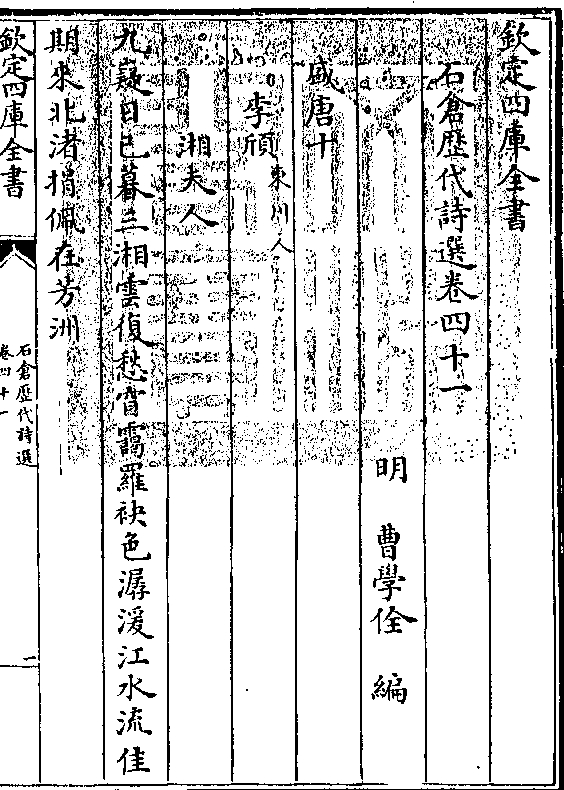 欽定四庫全書
石倉歷代詩選卷四十一
明 曹學佺 編
盛唐十
李頎東川人
湘夫人
九嶷日已暮三湘雲復愁窅靄羅袂色潺湲江水流佳
期來北渚捐佩在芳洲
欽定四庫全書
石倉歷代詩選
卷四十一